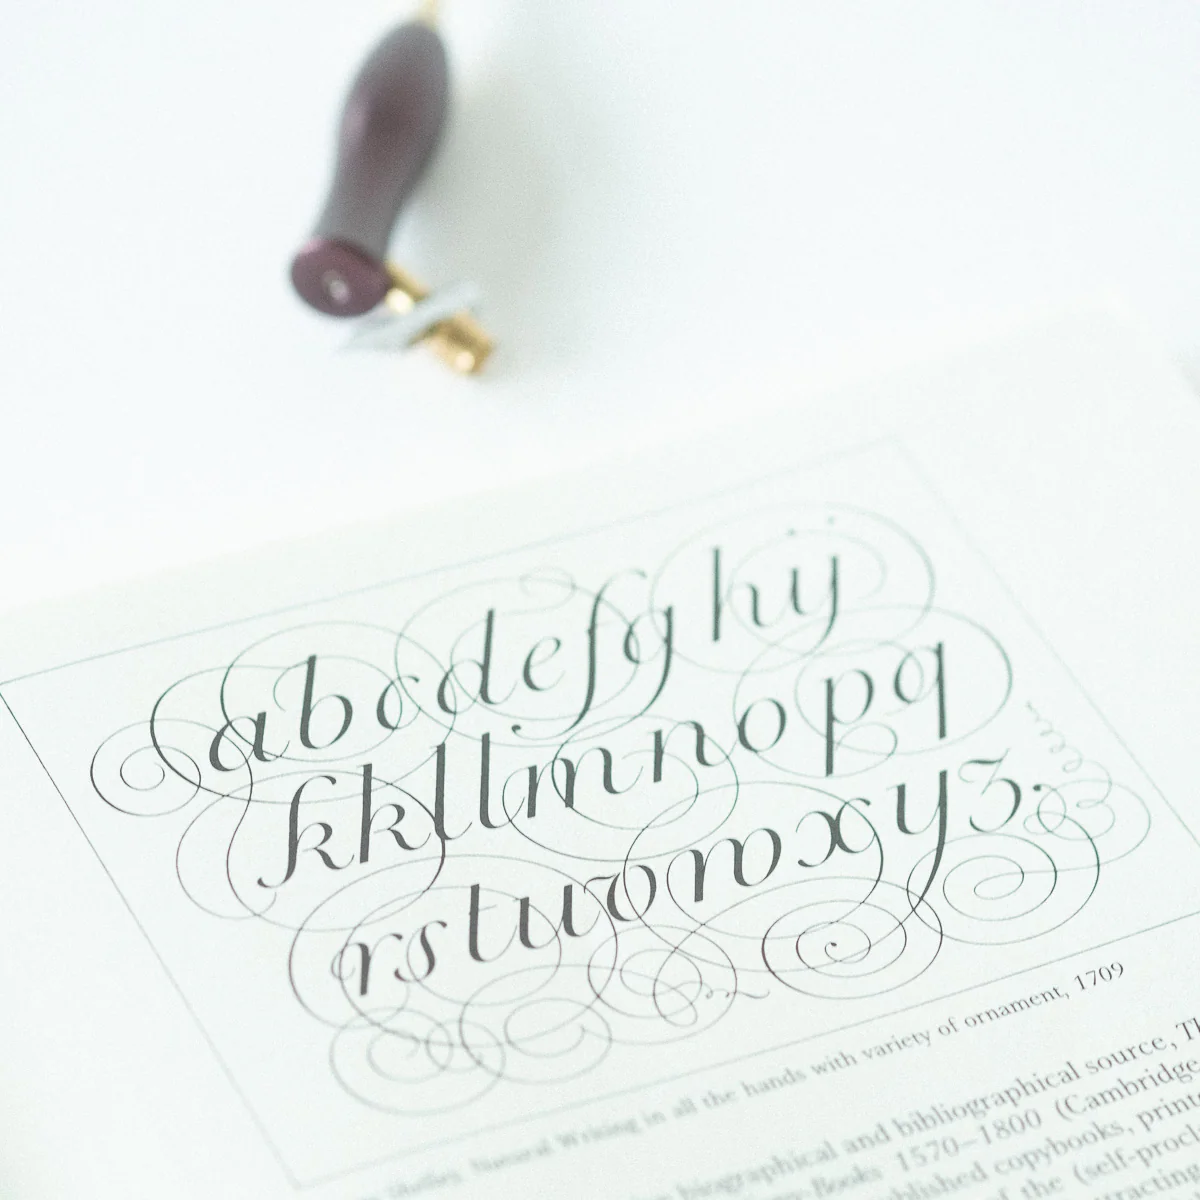 abcdefghy
kkllmnopq
rstuvwxyz.
Shelley, Natural Writing in all the hands with variety of ornament, 1709
biographical and bibliographical source, Th
-Books 1570–1800 (Cambridge
published copybooks, print
of the (self-procl